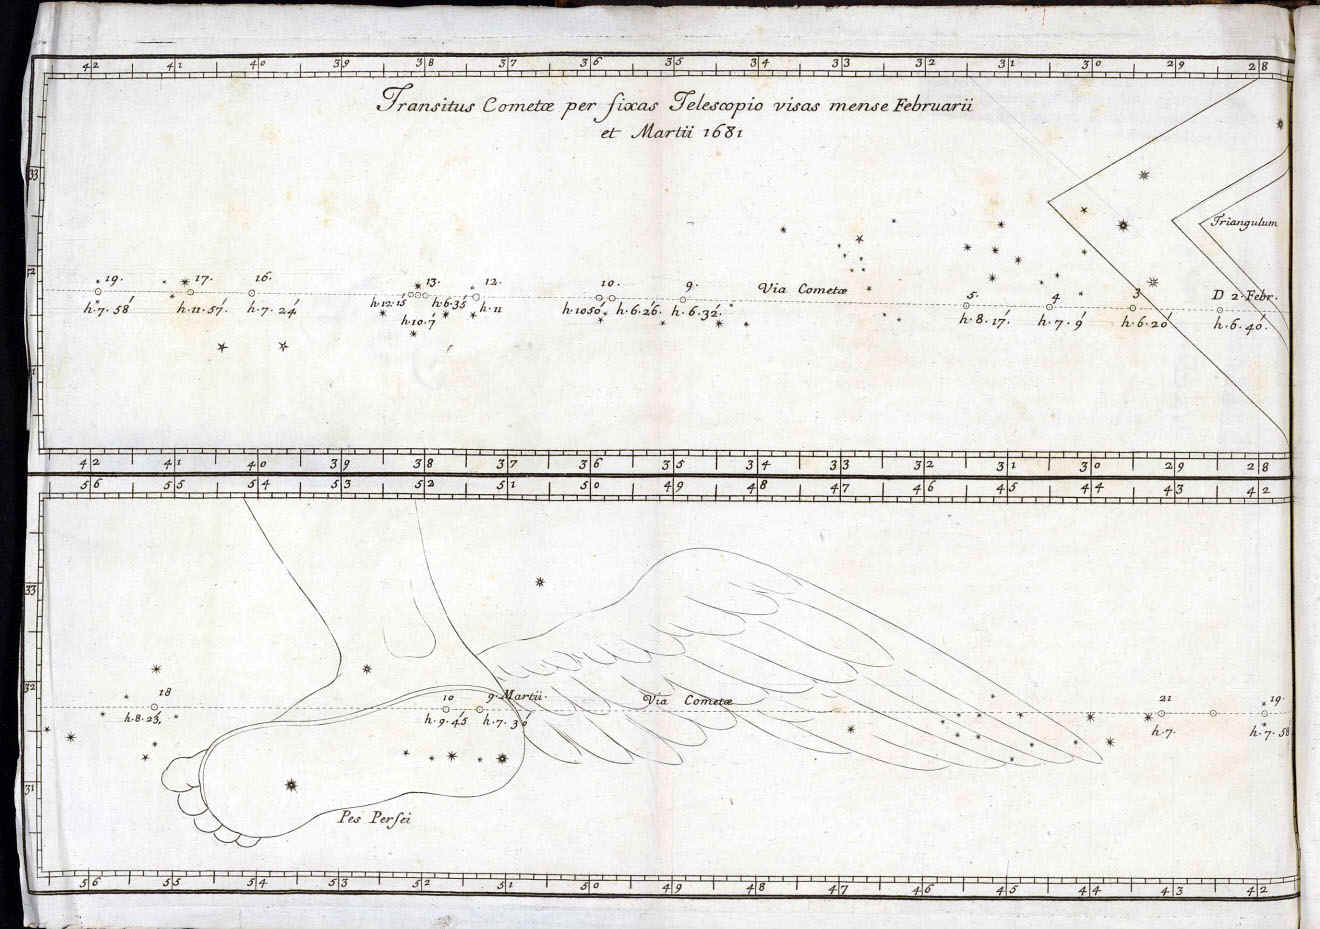 42 41 40 39 38 37 36 35 34 33 32 31 30 29 28
Transitus Cometæ per fixas Telescopio visas mense Februarii
et Martii 1681
33
Triangulum
32
19. 17. 16. 13. 12. 10. 9. Via Cometæ 5. 4 3 D 2. Febr.
h. 7. 58′ h. 11. 57′. h. 7. 24′ h. 12. 15′ h. 6. 35′ h. 11 h. 10 50′. h. 6. 26. h. 6. 32′. h. 8. 17′. h. 7. 9′ h. 6. 20′ h. 6. 40′.
h. 10. 7′
42 41 40 39 38 37 36 35 34 33 32 31 30 29 28
56 55 54 53 52 51 50 49 48 47 46 45 44 43 42
33
32
18 10 9. Martii. Via Cometæ 21 19.
h. 8. 23′, h. 9. 45′ h. 7. 30′ h. 7. h. 7. 58
31
Pes Perſei
56 55 54 53 52 51 50 49 48 47 46 45 44 43 42